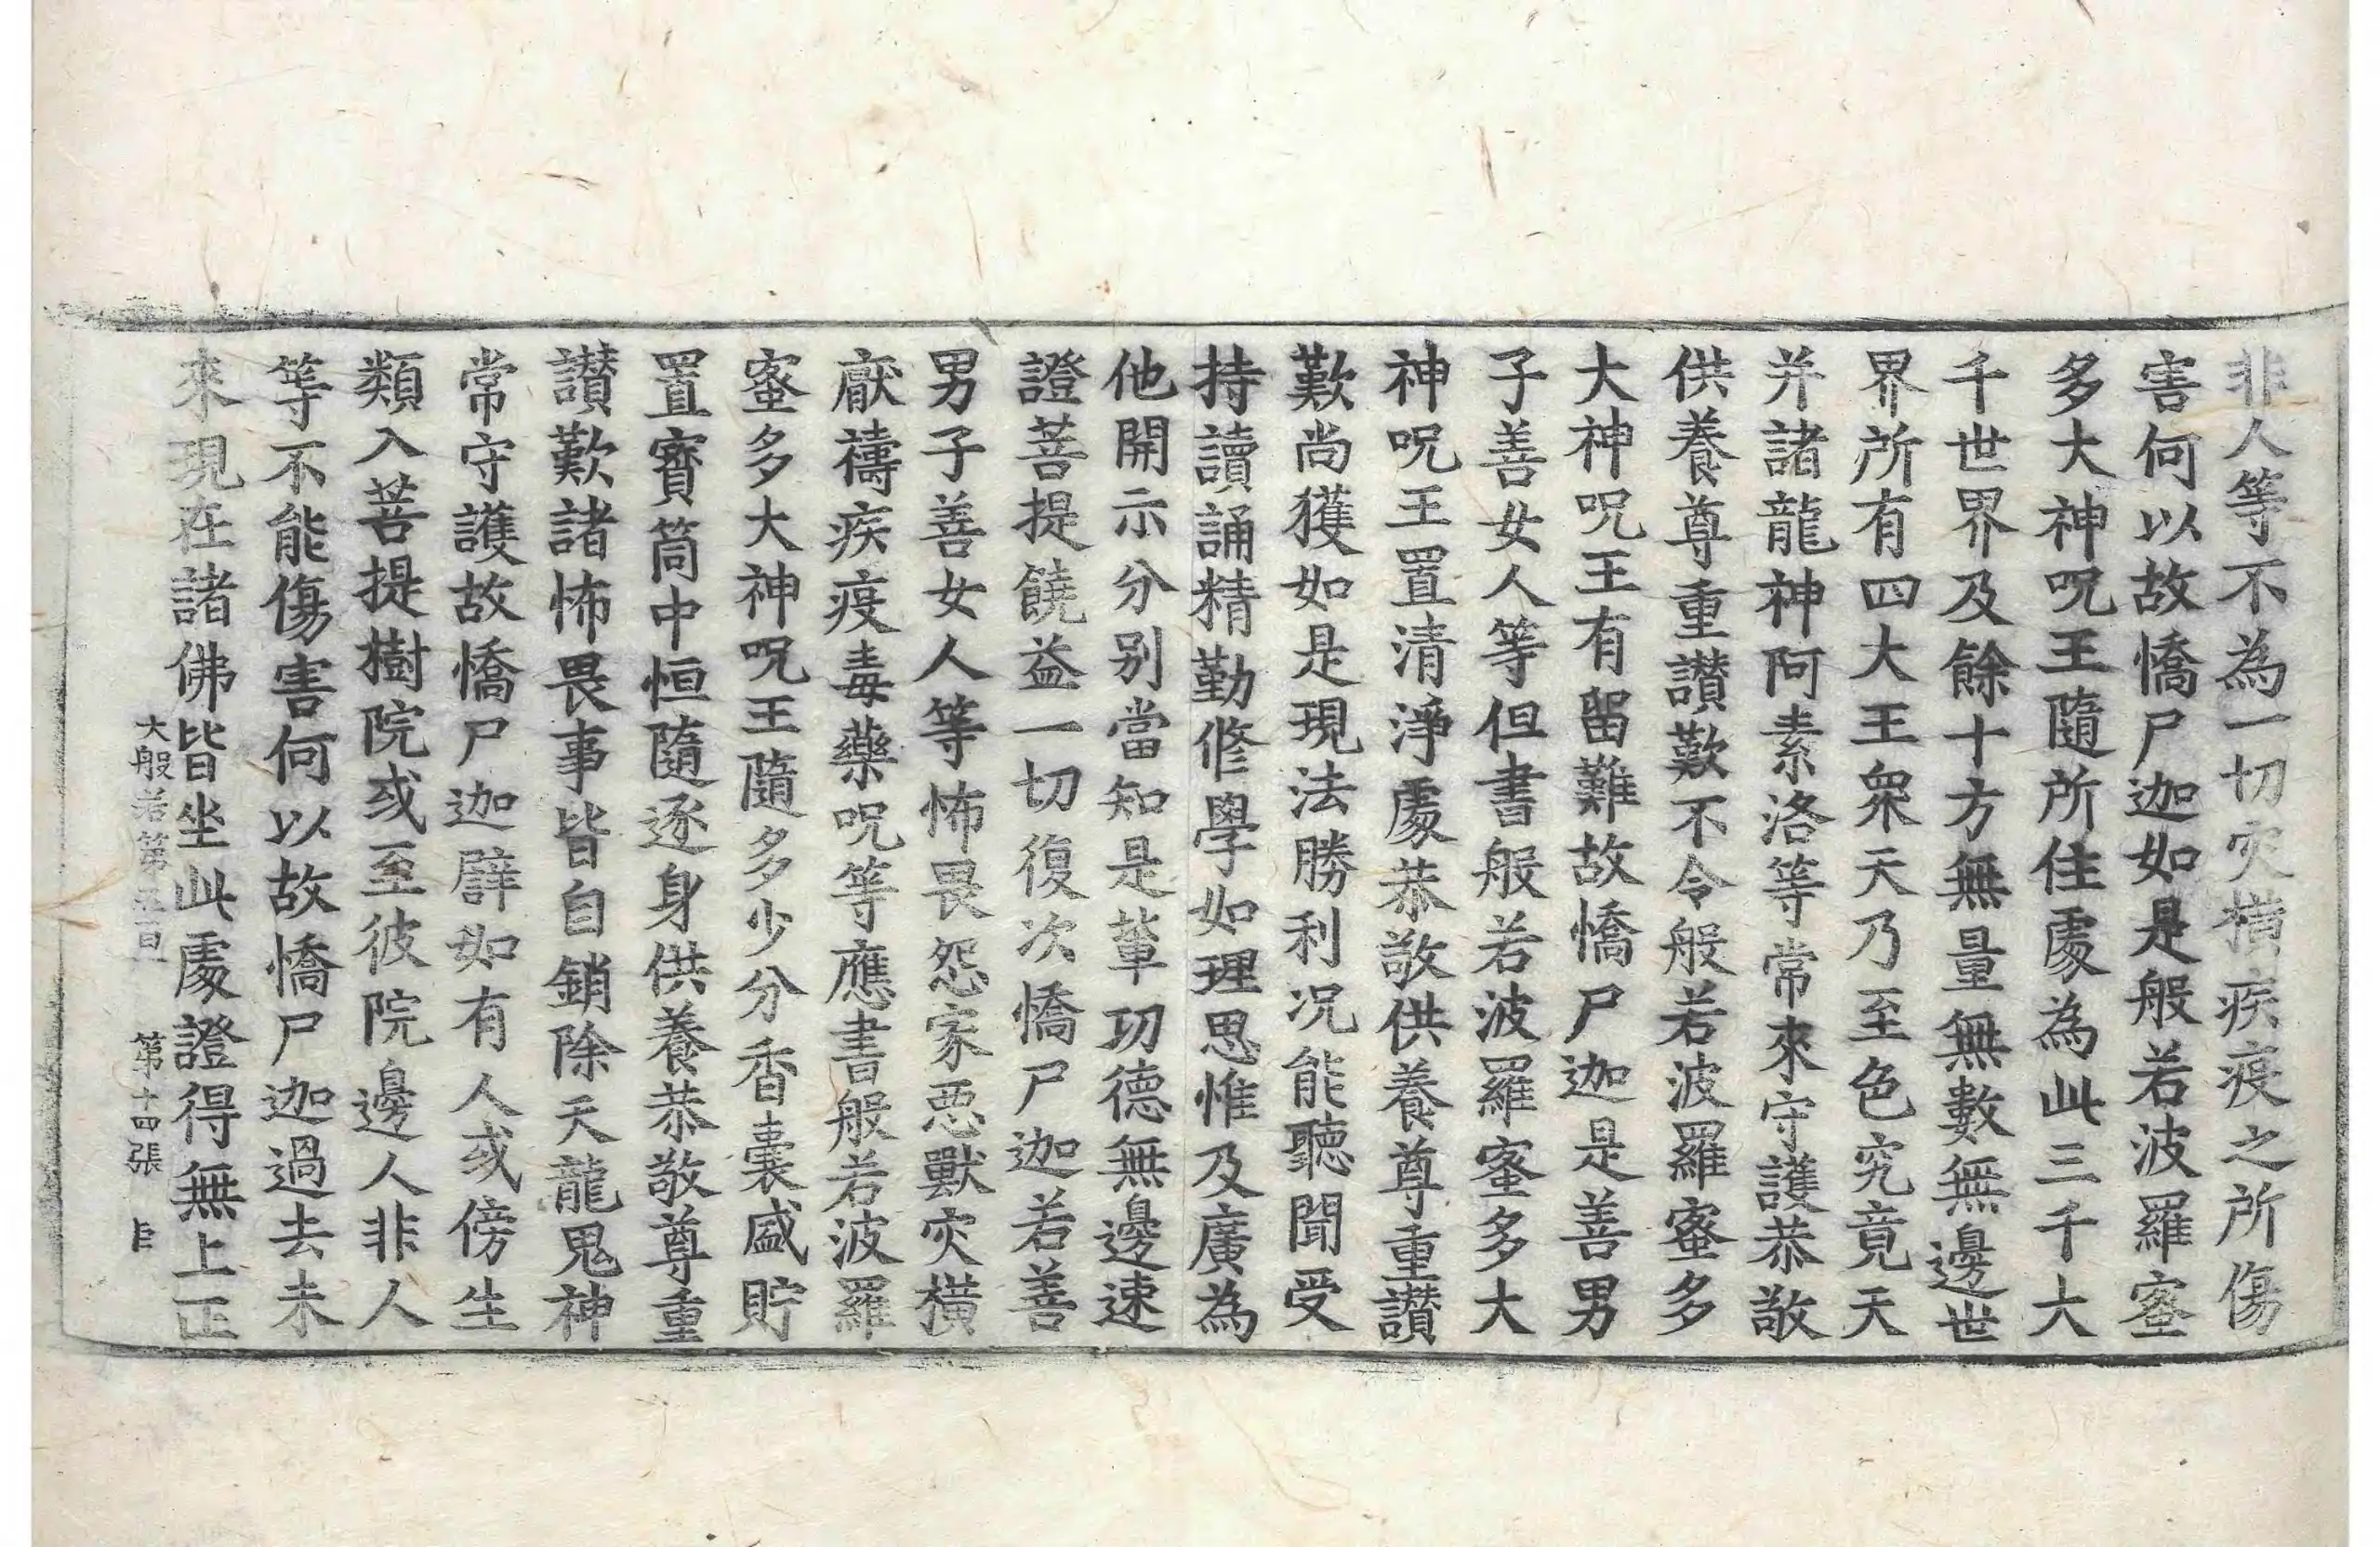 非人等不為一切灾橫疾疫之所傷
害何以故憍尸迦如是般若波羅蜜
多大神呪王隨所住處為此三千大
千世界及餘十方無量無數無邊世
界所有四大王衆天乃至色究竟天
并諸龍神阿素洛等常來守護恭敬
供養尊重讃歎不令般若波羅蜜多
大神呪王有留難故憍尸迦是善男
子善女人等但書般若波羅蜜多大
神呪王置清淨處恭敬供養尊重讃
歎尚獲如是現法勝利况能聽聞受
持讀誦精勤修學如理思惟及廣為
他開示分别當知是軰功德無邊速
證菩提饒益一切復次憍尸迦若善
男子善女人等怖畏怨家惡獸灾橫
厭禱疾疫毒藥呪等應書般若波羅
蜜多大神呪王隨多少分香囊盛貯
置寶筒中恒隨逐身供養恭敬尊重
讃歎諸怖畏事皆自銷除天龍鬼神
常守護故憍尸迦譬如有人或傍生
類入菩提樹院或至彼院邊人非人
等不能傷害何以故憍尸迦過去未
來現在諸佛皆坐此處證得無上正
大般若第五百一 第十四張